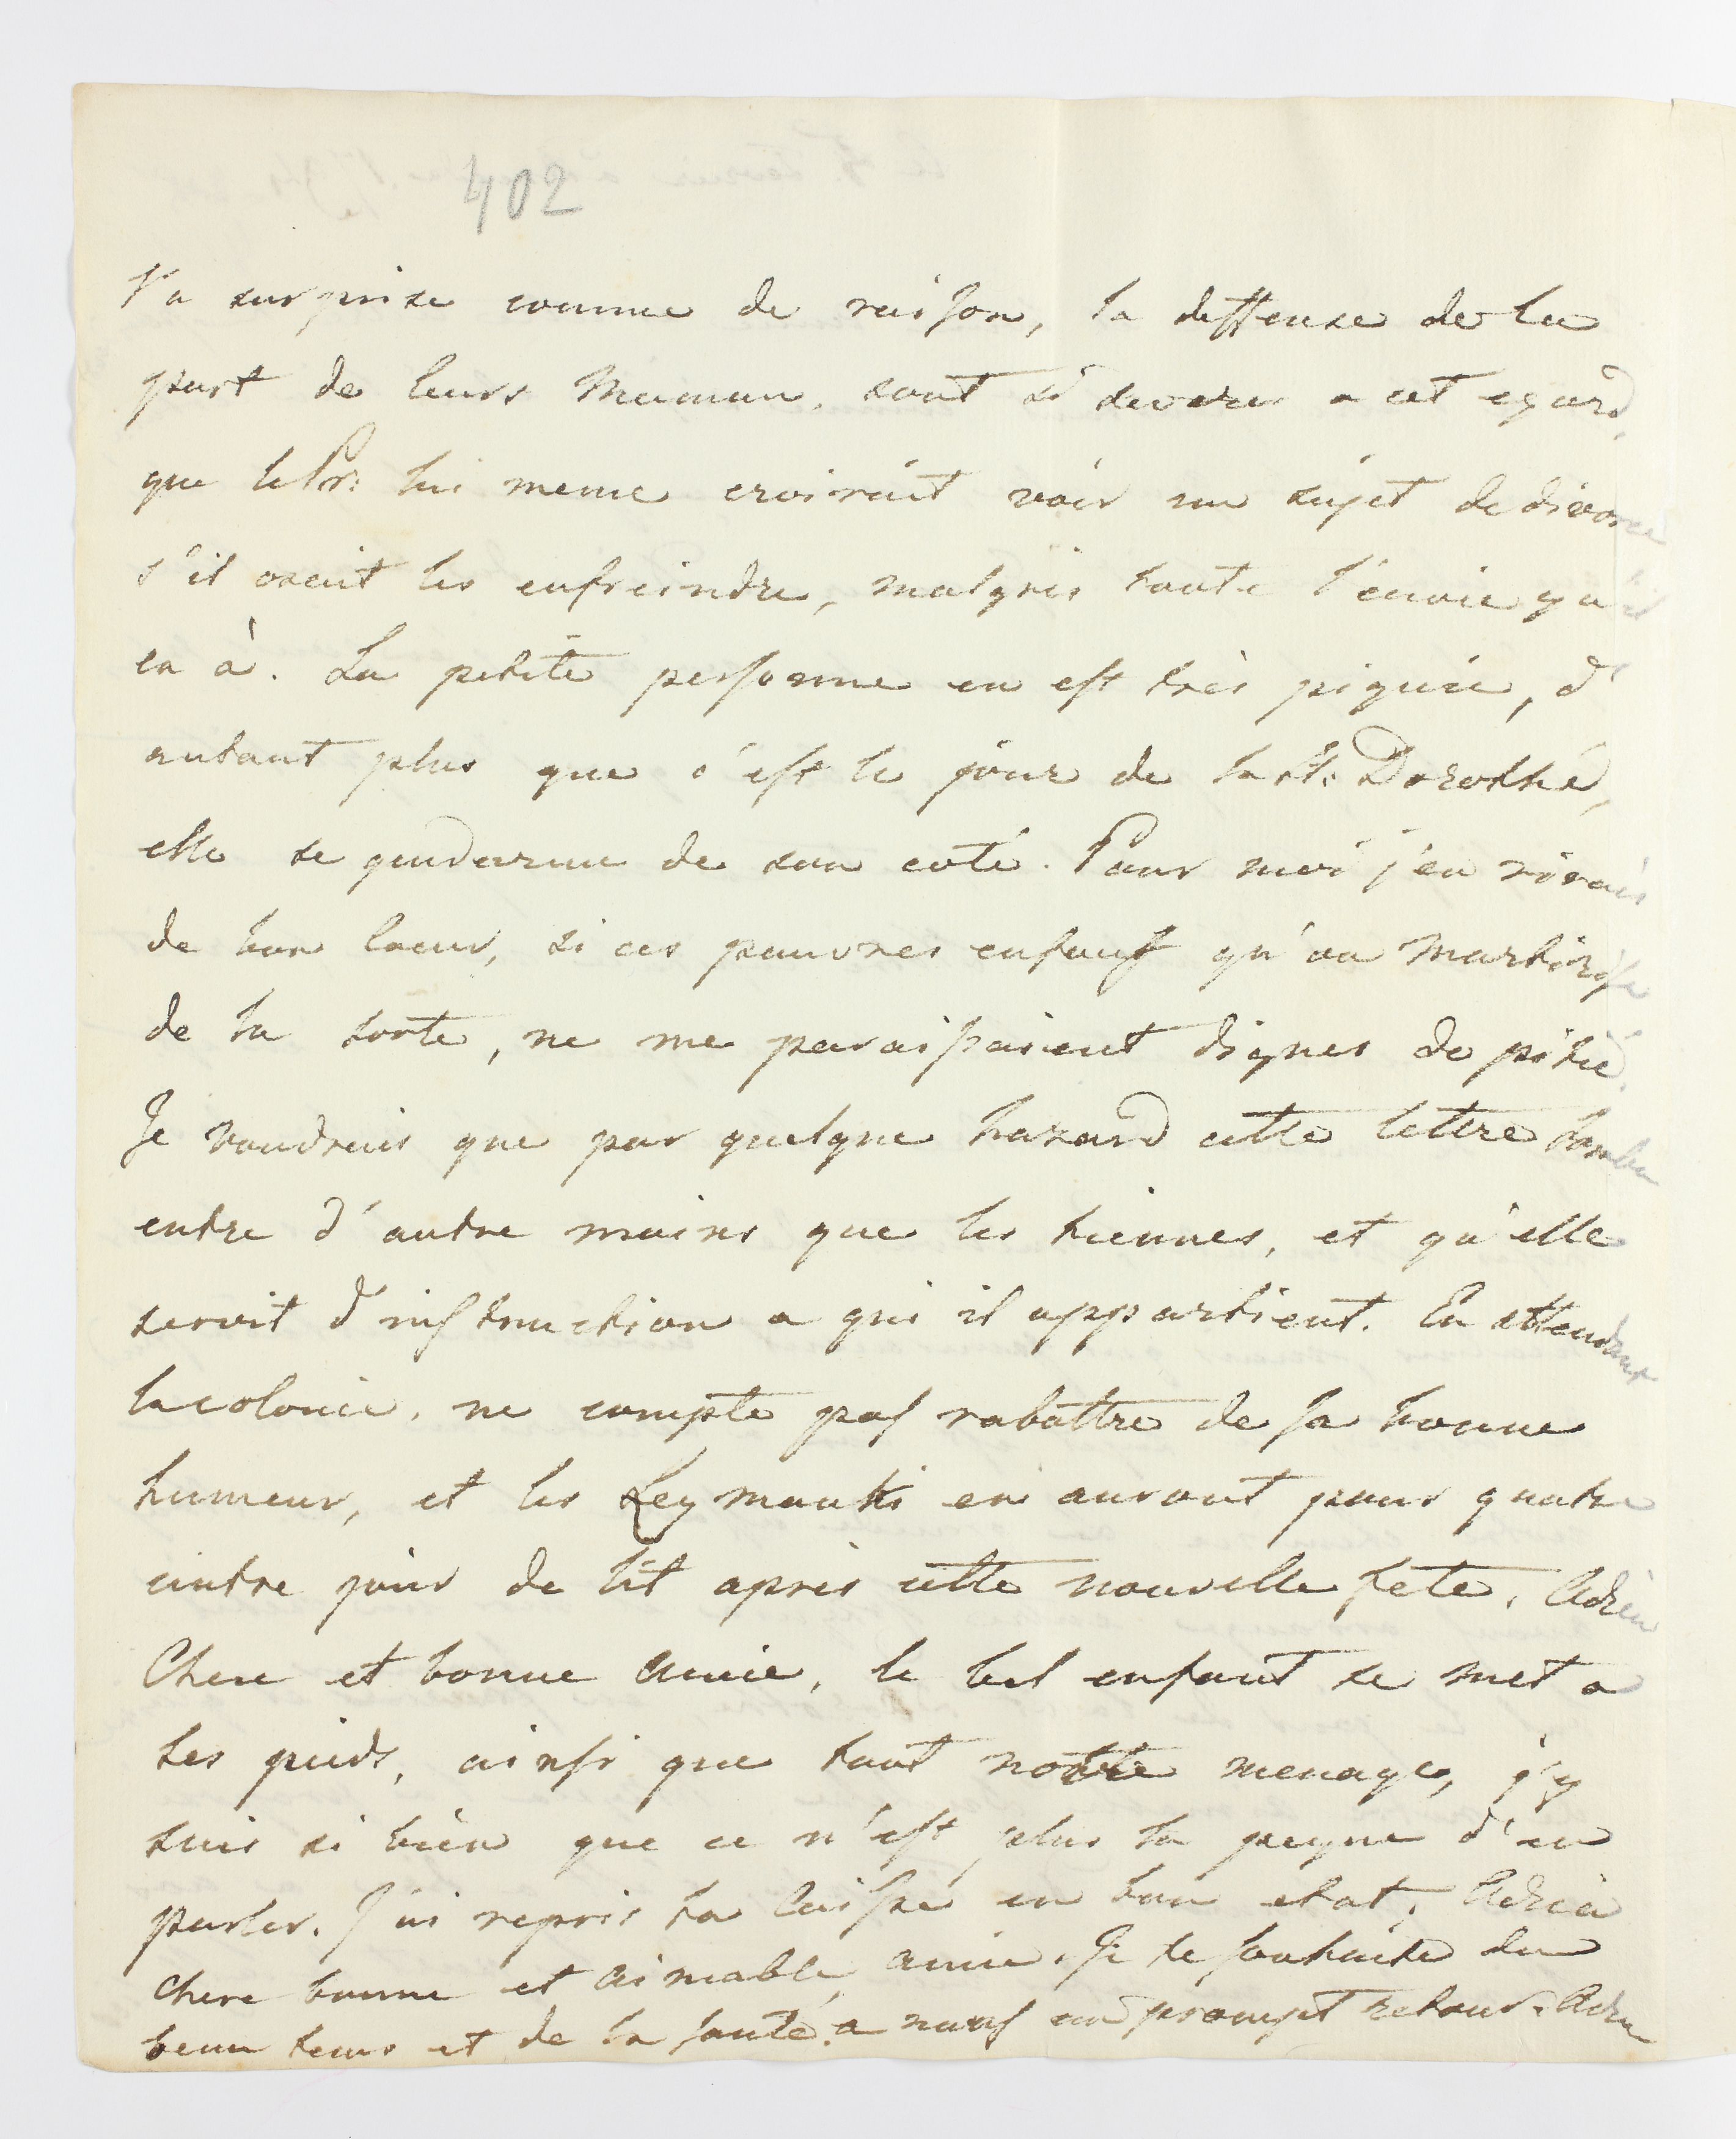 402
l'a surprise comme de raison, la deffense de la
part de leurs Maman, sont si severes a cet egard,
que le Pr: lui meme croirait voir un sujet de divorce
s'il osait les enfreindre, malgres toute l'envie qu'il
en à. La petite personne en est très piquée, d'
autant plus que c'est le jour de la St: Dorothé,
elle se gendarme de son coté. Pour moi j'en rirais
de bon coeur, si ces pauvres enfans qu'on martirise
de la sorte, ne me paraissaient dignes de pitié.
Je voudrais que par quelque hazard cette lettre tomba
entre d'autre mains que les tiennes, et qu'elle
servit d'instruction a qui il appartient. En attendant
la colonie, ne compte pas rabattre de sa bonne
humeur, et les en auront pour quatre
cintre jour de lit apres cette nouvelle fete. Adieu
Chere et bonne amie, le bel enfant se met a
tes pieds, ainsi que tout notre menage, j'y
suis si bien que ce n'est plus la peyne d'en
parler. J'ai repris ta caisse en bon etat. Adieu
chere bonne et aimable amie. Je te souhaite du
beau tems et de la santé, a nous un prompt retour. Adieu